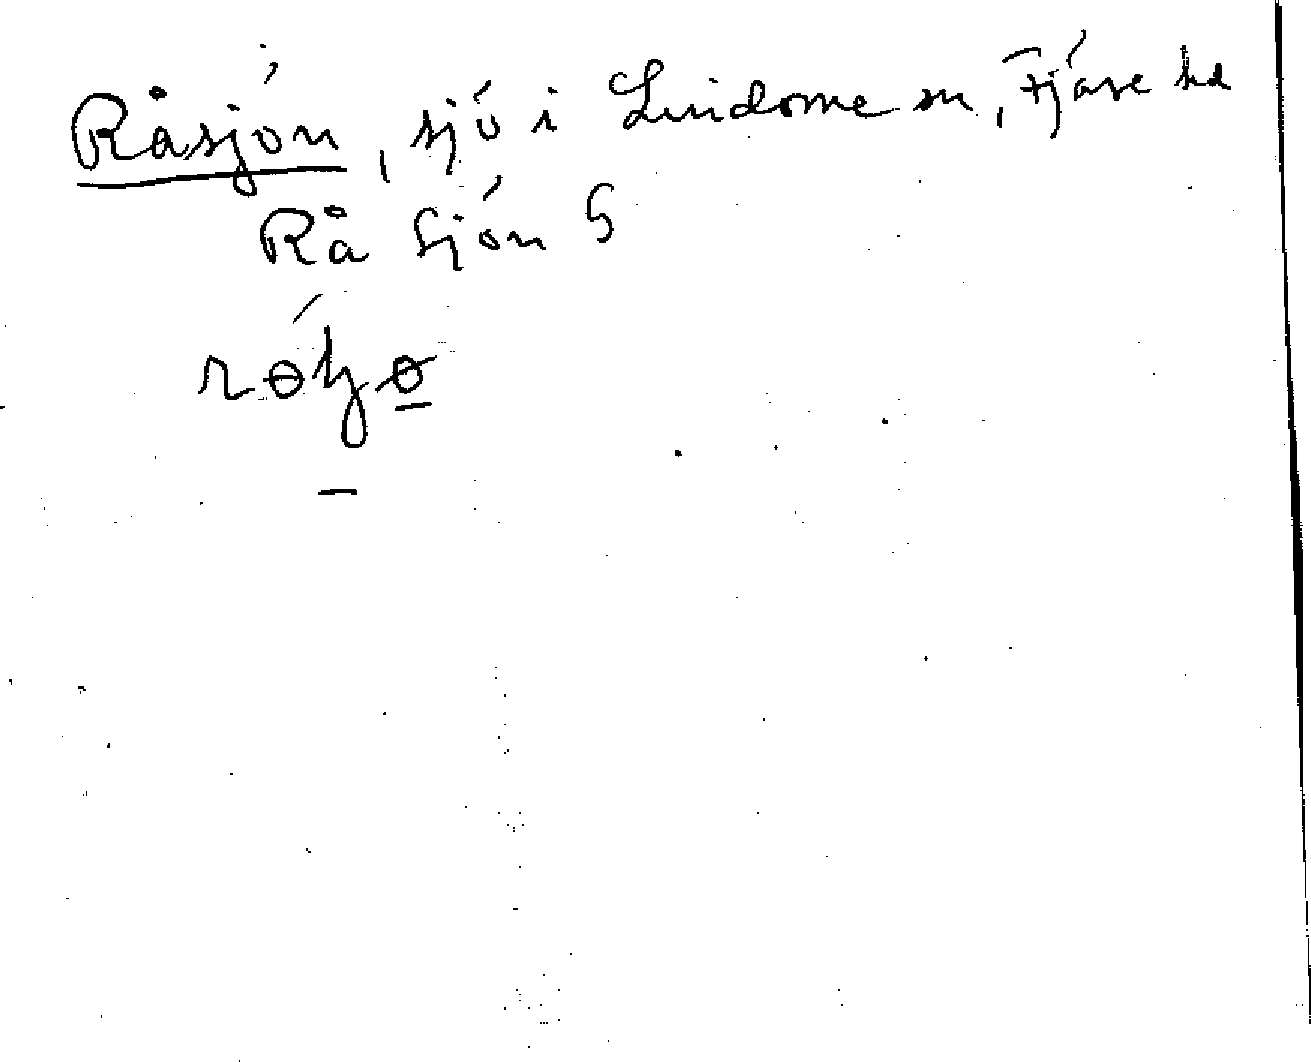 Råsjön, sjö i Lindome sn, Fjäre hd
Rå Sjön S